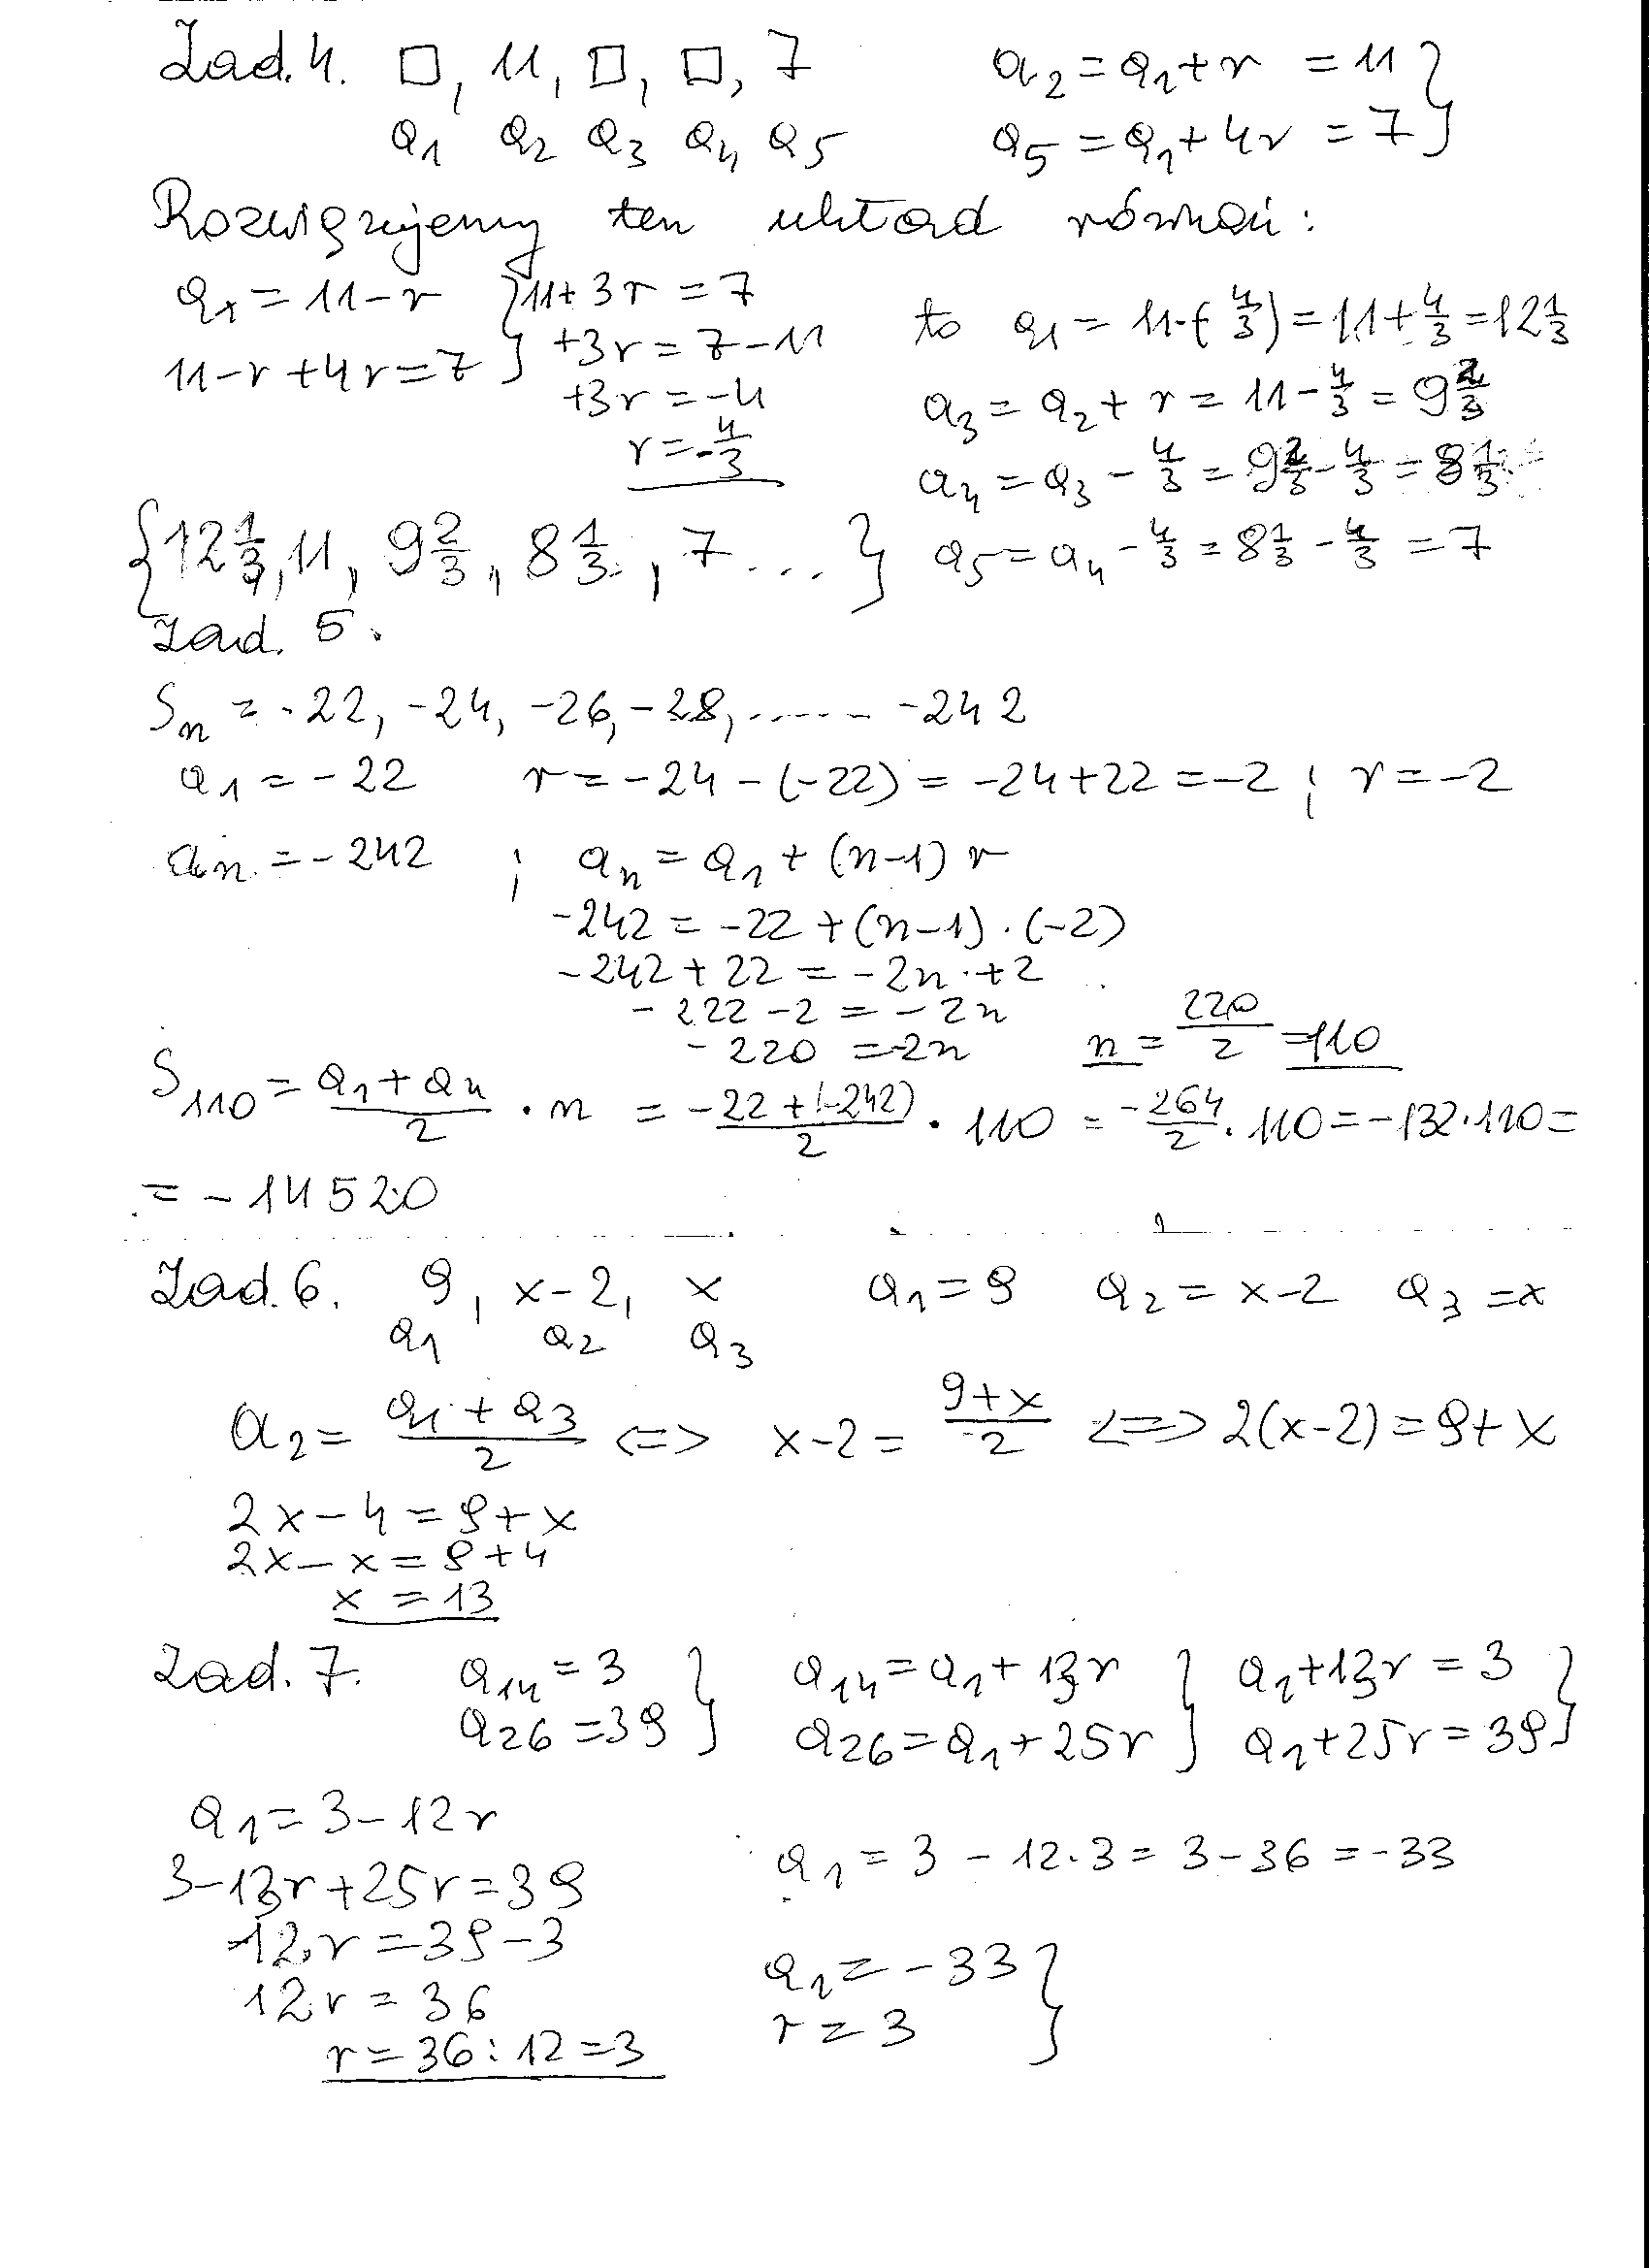 Zad. 4. □, 11, □, □, 7    a₂ = a₁ + r = 11 }
a₁ a₂ a₃ a₄ a₅    a₅ = a₁ + 4r = 7 }
Rozwiązujemy ten układ równań:
a₁ = 11 - r } 11 + 3r = 7
11 - r + 4r = 7 } +3r = 7 - 11
+3r = -4
r = -4/3
to a₁ = 11 - (-4/3) = 11 + 4/3 = 12 1/3
a₃ = a₂ + r = 11 - 4/3 = 9 2/3
a₄ = a₃ - 4/3 = 9 2/3 - 4/3 = 8 1/3 =
{12 1/3, 11, 9 2/3, 8 1/3, 7 ... }    a₅ = a₄ - 4/3 = 8 1/3 - 4/3 = 7
Zad. 5.
Sₙ = -22, -24, -26, -28, ...... -242
a₁ = -22    r = -24 - (-22) = -24 + 22 = -2 ; r = -2
aₙ = -242 ; aₙ = a₁ + (n-1) r
-242 = -22 + (n-1) · (-2)
-242 + 22 = -2n + 2
-222 - 2 = -2n
-220 = -2n    n = 220/2 = 110
S₁₁₀ = (a₁ + aₙ)/2 · n = (-22 + (-242))/2 · 110 = -264/2 · 110 = -132 · 110 =
= -14520
Zad. 6. 9, x-2, x    a₁ = 9    a₂ = x-2    a₃ = x
a₁ a₂ a₃
a₂ = (a₁ + a₃)/2 <=> x-2 = (9+x)/2 <=> 2(x-2) = 9 + x
2x - 4 = 9 + x
2x - x = 9 + 4
x = 13
Zad. 7. a₁₄ = 3 }    a₁₄ = a₁ + 13r }    a₁ + 13r = 3 }
a₂₆ = 39 }    a₂₆ = a₁ + 25r }    a₁ + 25r = 39 }
a₁ = 3 - 12r
3 - 13r + 25r = 39
12r = 39 - 3
12r = 36
r = 36 : 12 = 3
a₁ = 3 - 12 · 3 = 3 - 36 = -33
a₁ = -33 }
r = 3 }